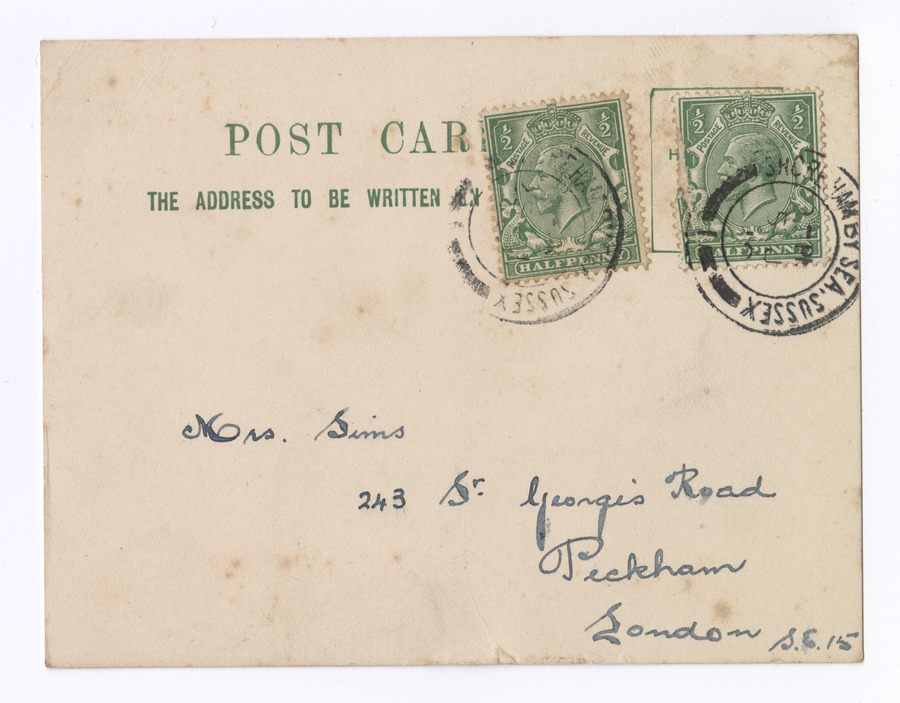 POST CAR
THE ADDRESS TO BE WRITTEN
½ ½
POSTAGE REVENUE
HALFPENNY
SUSSEX
½ ½
POSTAGE REVENUE
LFPENN
SHOREHAM BY SEA. SUSSEX
H
Mrs. Sims
243 St. George's Road
Peckham
London S.E.15